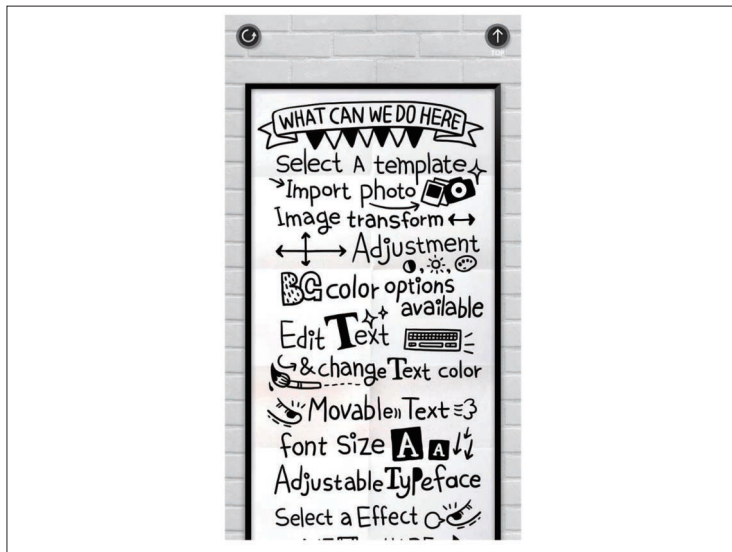 WHAT CAN WE DO HERE
Select A template
Import photo
Image transform
Adjustment
BG color options
available
Edit Text
& change Text color
Movable» Text
font Size A A
Adjustable Typeface
Select a Effect